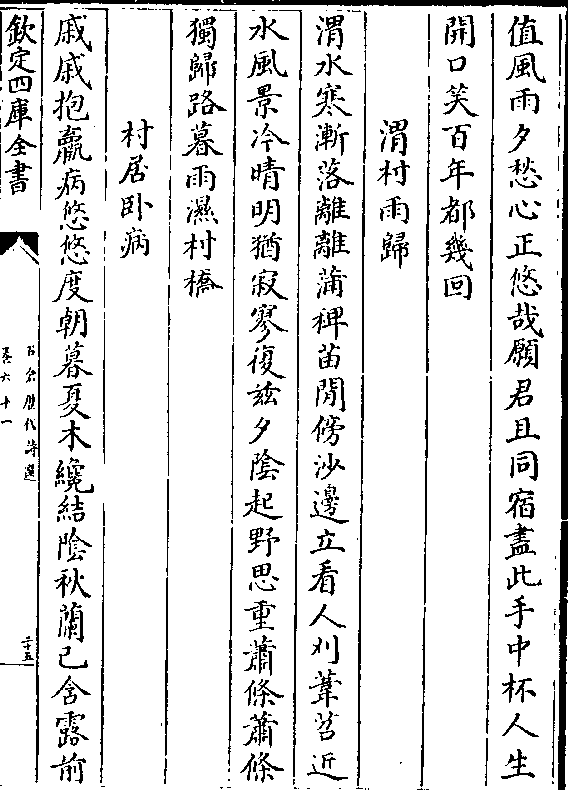 值風雨夕愁心正悠哉願君且同宿盡此手中杯人生
開口笑百年都幾回
渭村雨歸
渭水寒漸落離離蒲稗苗閒傍沙邊立看人刈葦苕近
水風景冷晴明猶寂寥復玆夕陰起野思重蕭條蕭條
獨歸路暮雨濕村橋
村居卧病
戚戚抱羸病悠悠度朝暮夏木纔結陰秋蘭已含露前
欽定四庫全書
石倉歷代詩選
卷六十一
二十五